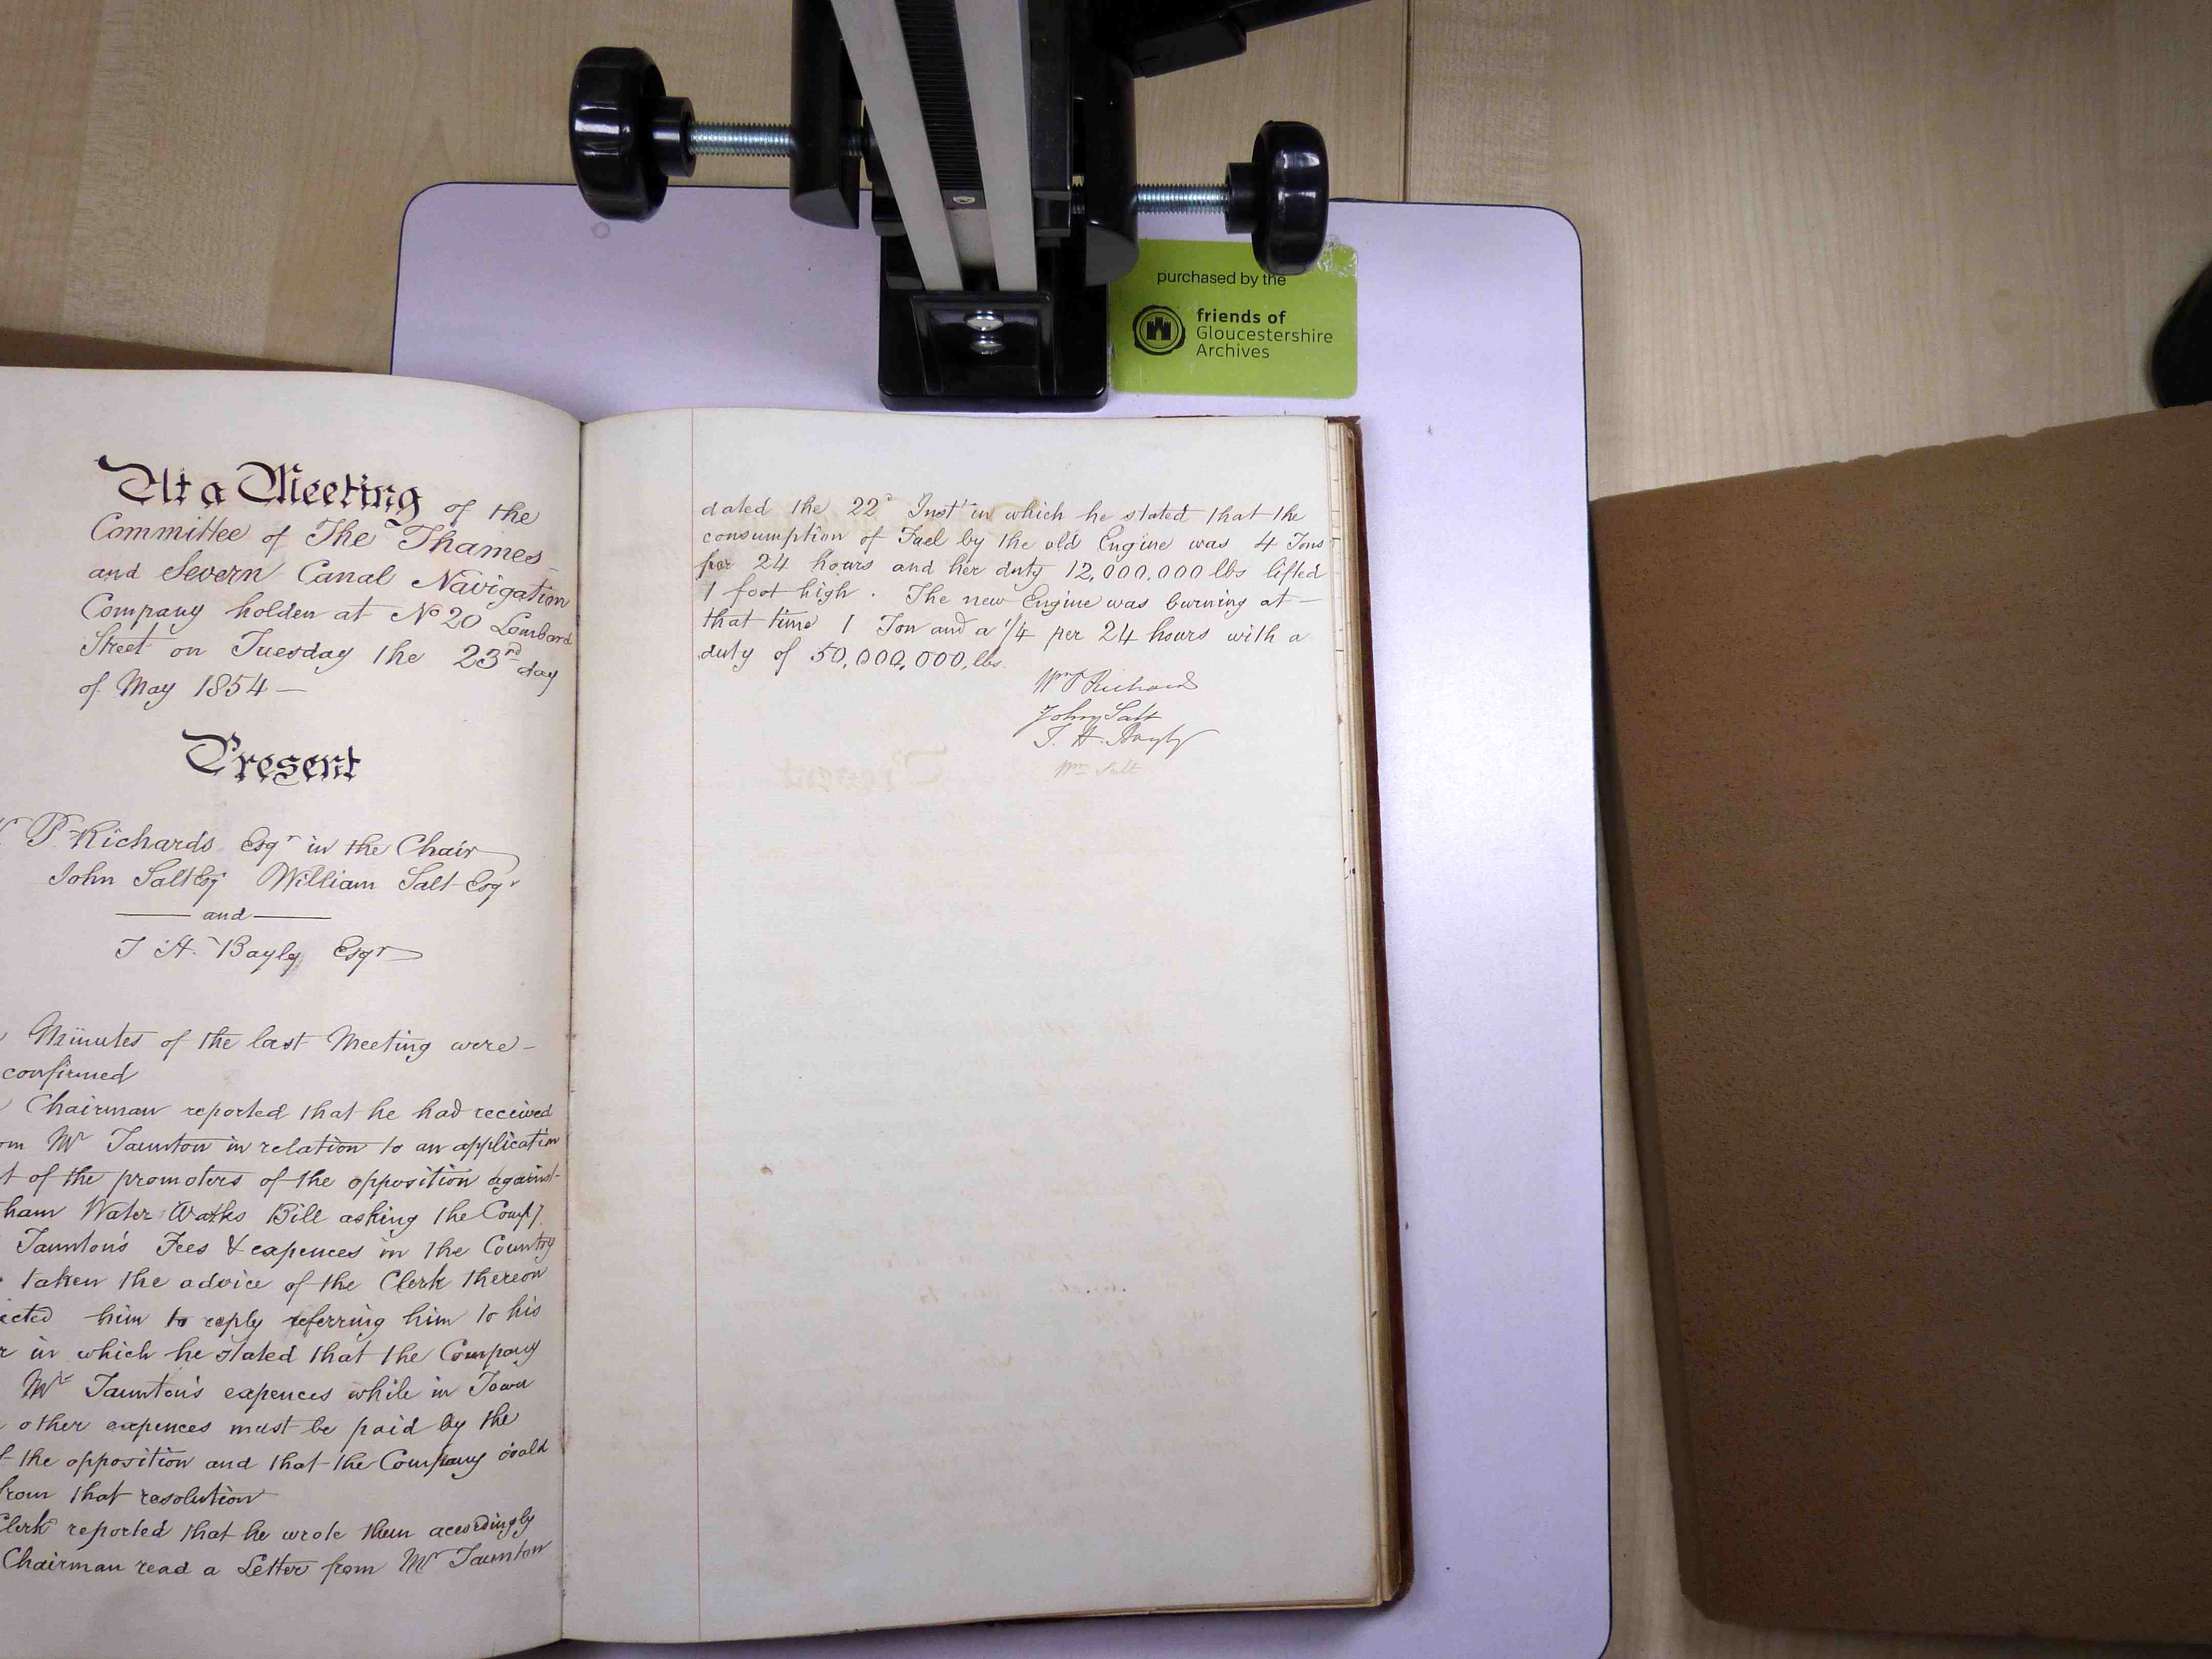 purchased by the
friends of
Gloucestershire
Archives
At a Meeting of the
Committee of The Thames
and Severn Canal Navigation
Company holden at No 20 Lombard
Street on Tuesday the 23rd day
of May 1854 —
Present
P Richards Esqr in the Chair
John Salt Esqr William Salt Esqr
— and —
T H Bayly Esqr
Minutes of the last Meeting were —
confirmed
Chairman reported that he had received
om Mr Taunton in relation to an application
t of the promoters of the opposition against
ham Water Works Bill asking the Compy
Taunton's Fees & expences in the Country
taken the advice of the Clerk thereon
ected him to reply referring him to his
r in which he stated that the Company
Mr Taunton's expences while in Town
other expences must be paid by the
f the opposition and that the Company could
from that resolution
Clerk reported that he wrote them accordingly
Chairman read a Letter from Mr Taunton
dated the 22d Inst in which he stated that the
consumption of Fuel by the old Engine was 4 Tons
per 24 hours and her duty 12,000,000 lbs lifted
1 foot high. The new Engine was burning at —
that time 1 Ton and a 1/4 per 24 hours with a
duty of 50,000,000, lbs.
Wm P Richards
John Salt
T. H. Bayly
Wm Salt